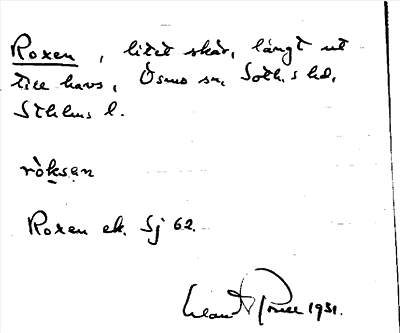 Roxen, litet skär, långt ut
till havs, Ösmo sn, Soth.s hd,
Sthlms l.
ròksan
Roxen ek. Sj 62.
1931.